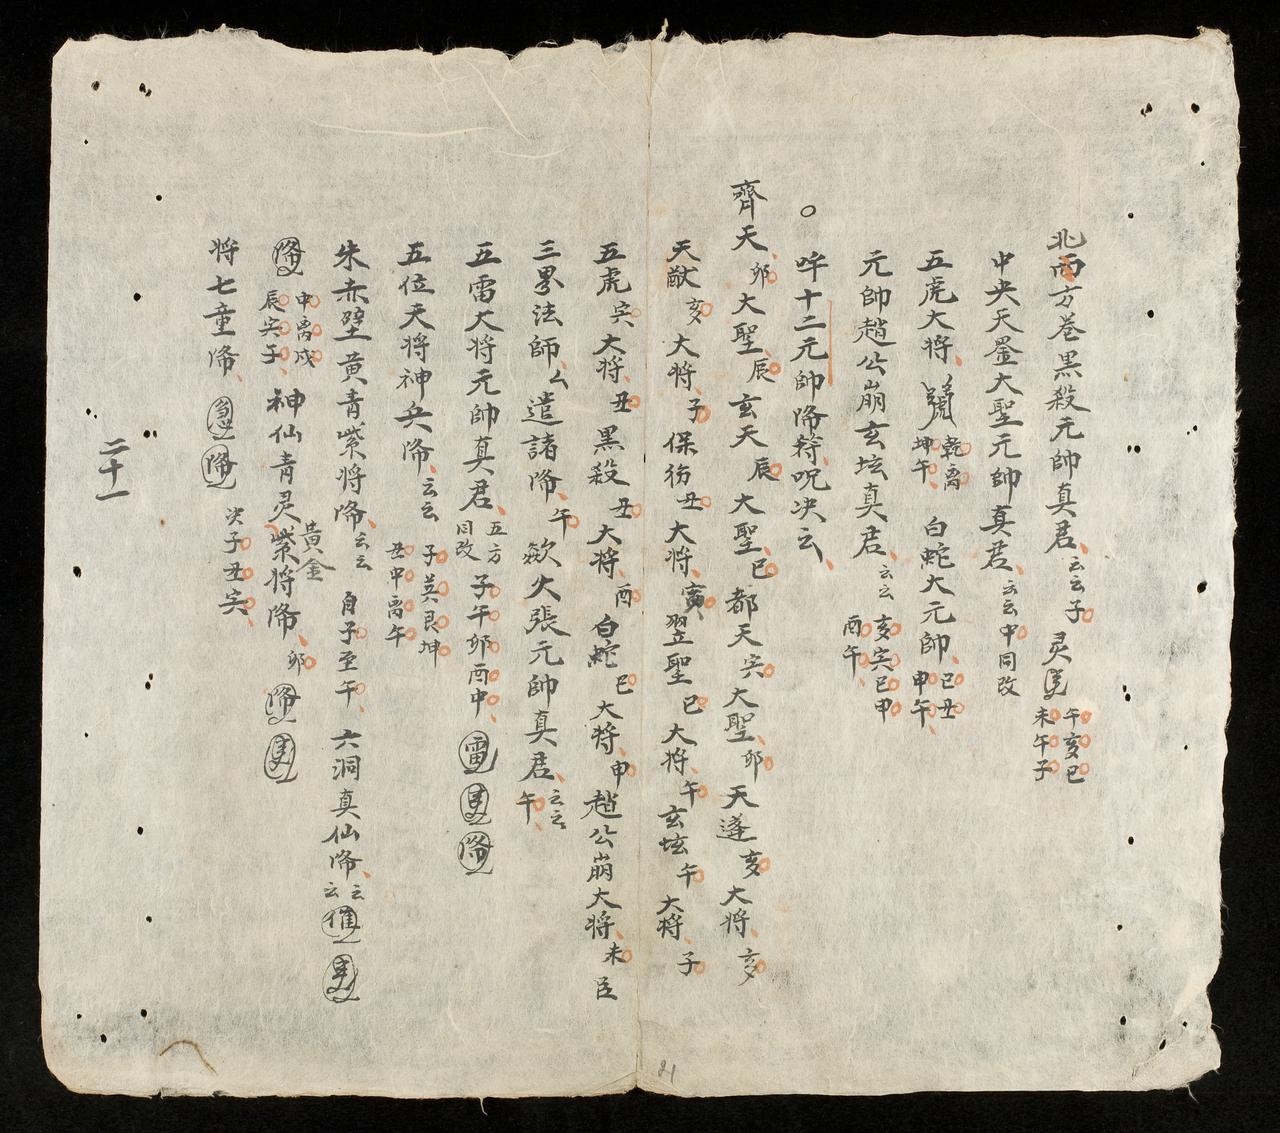 北方卷黑殺元帥真君云云子灵 午亥巳未午子
中央天罡大聖元帥真君云云中同改
五虎大将 乾离坤午 白蛇大元帥 巳丑申午
元帥趙公崩玄坛真君云云 亥寅巳申酉午
○吽十二元帥降符呪决云
齊天卯大聖辰玄天辰大聖巳都天寅大聖卯天蓬亥大将亥
天猷亥大将子保彷丑大将寅翌聖巳大将午玄坛午大将子
五虎寅大将丑黑殺丑大将酉白蛇巳大将申趙公崩大将未臣
三界法師厶遣諸降午歘火張元帥真君云云午
五雷大将元帥真君 五方同改 子午卯酉中 雷 降
五位天将神兵降云云 子異艮坤丑申离午
朱赤壁黄青紫将降云云 自子至午 六洞真仙降云云 催
降 中离戌辰寅子 神仙青灵紫将降 黄金 卯 降
将七童降 急 降 决子丑寅
二十一
21